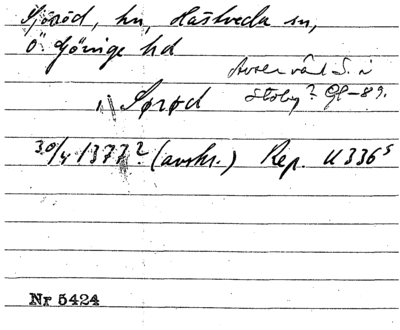 Sjöröd, hn, Hästveda sn,
Ö Göinge hd
Avser väl S. i
Stoby? GP-89.
"Sørød
30/4 1377? (avskr.) Rep. U 336⁵
Nr 5424